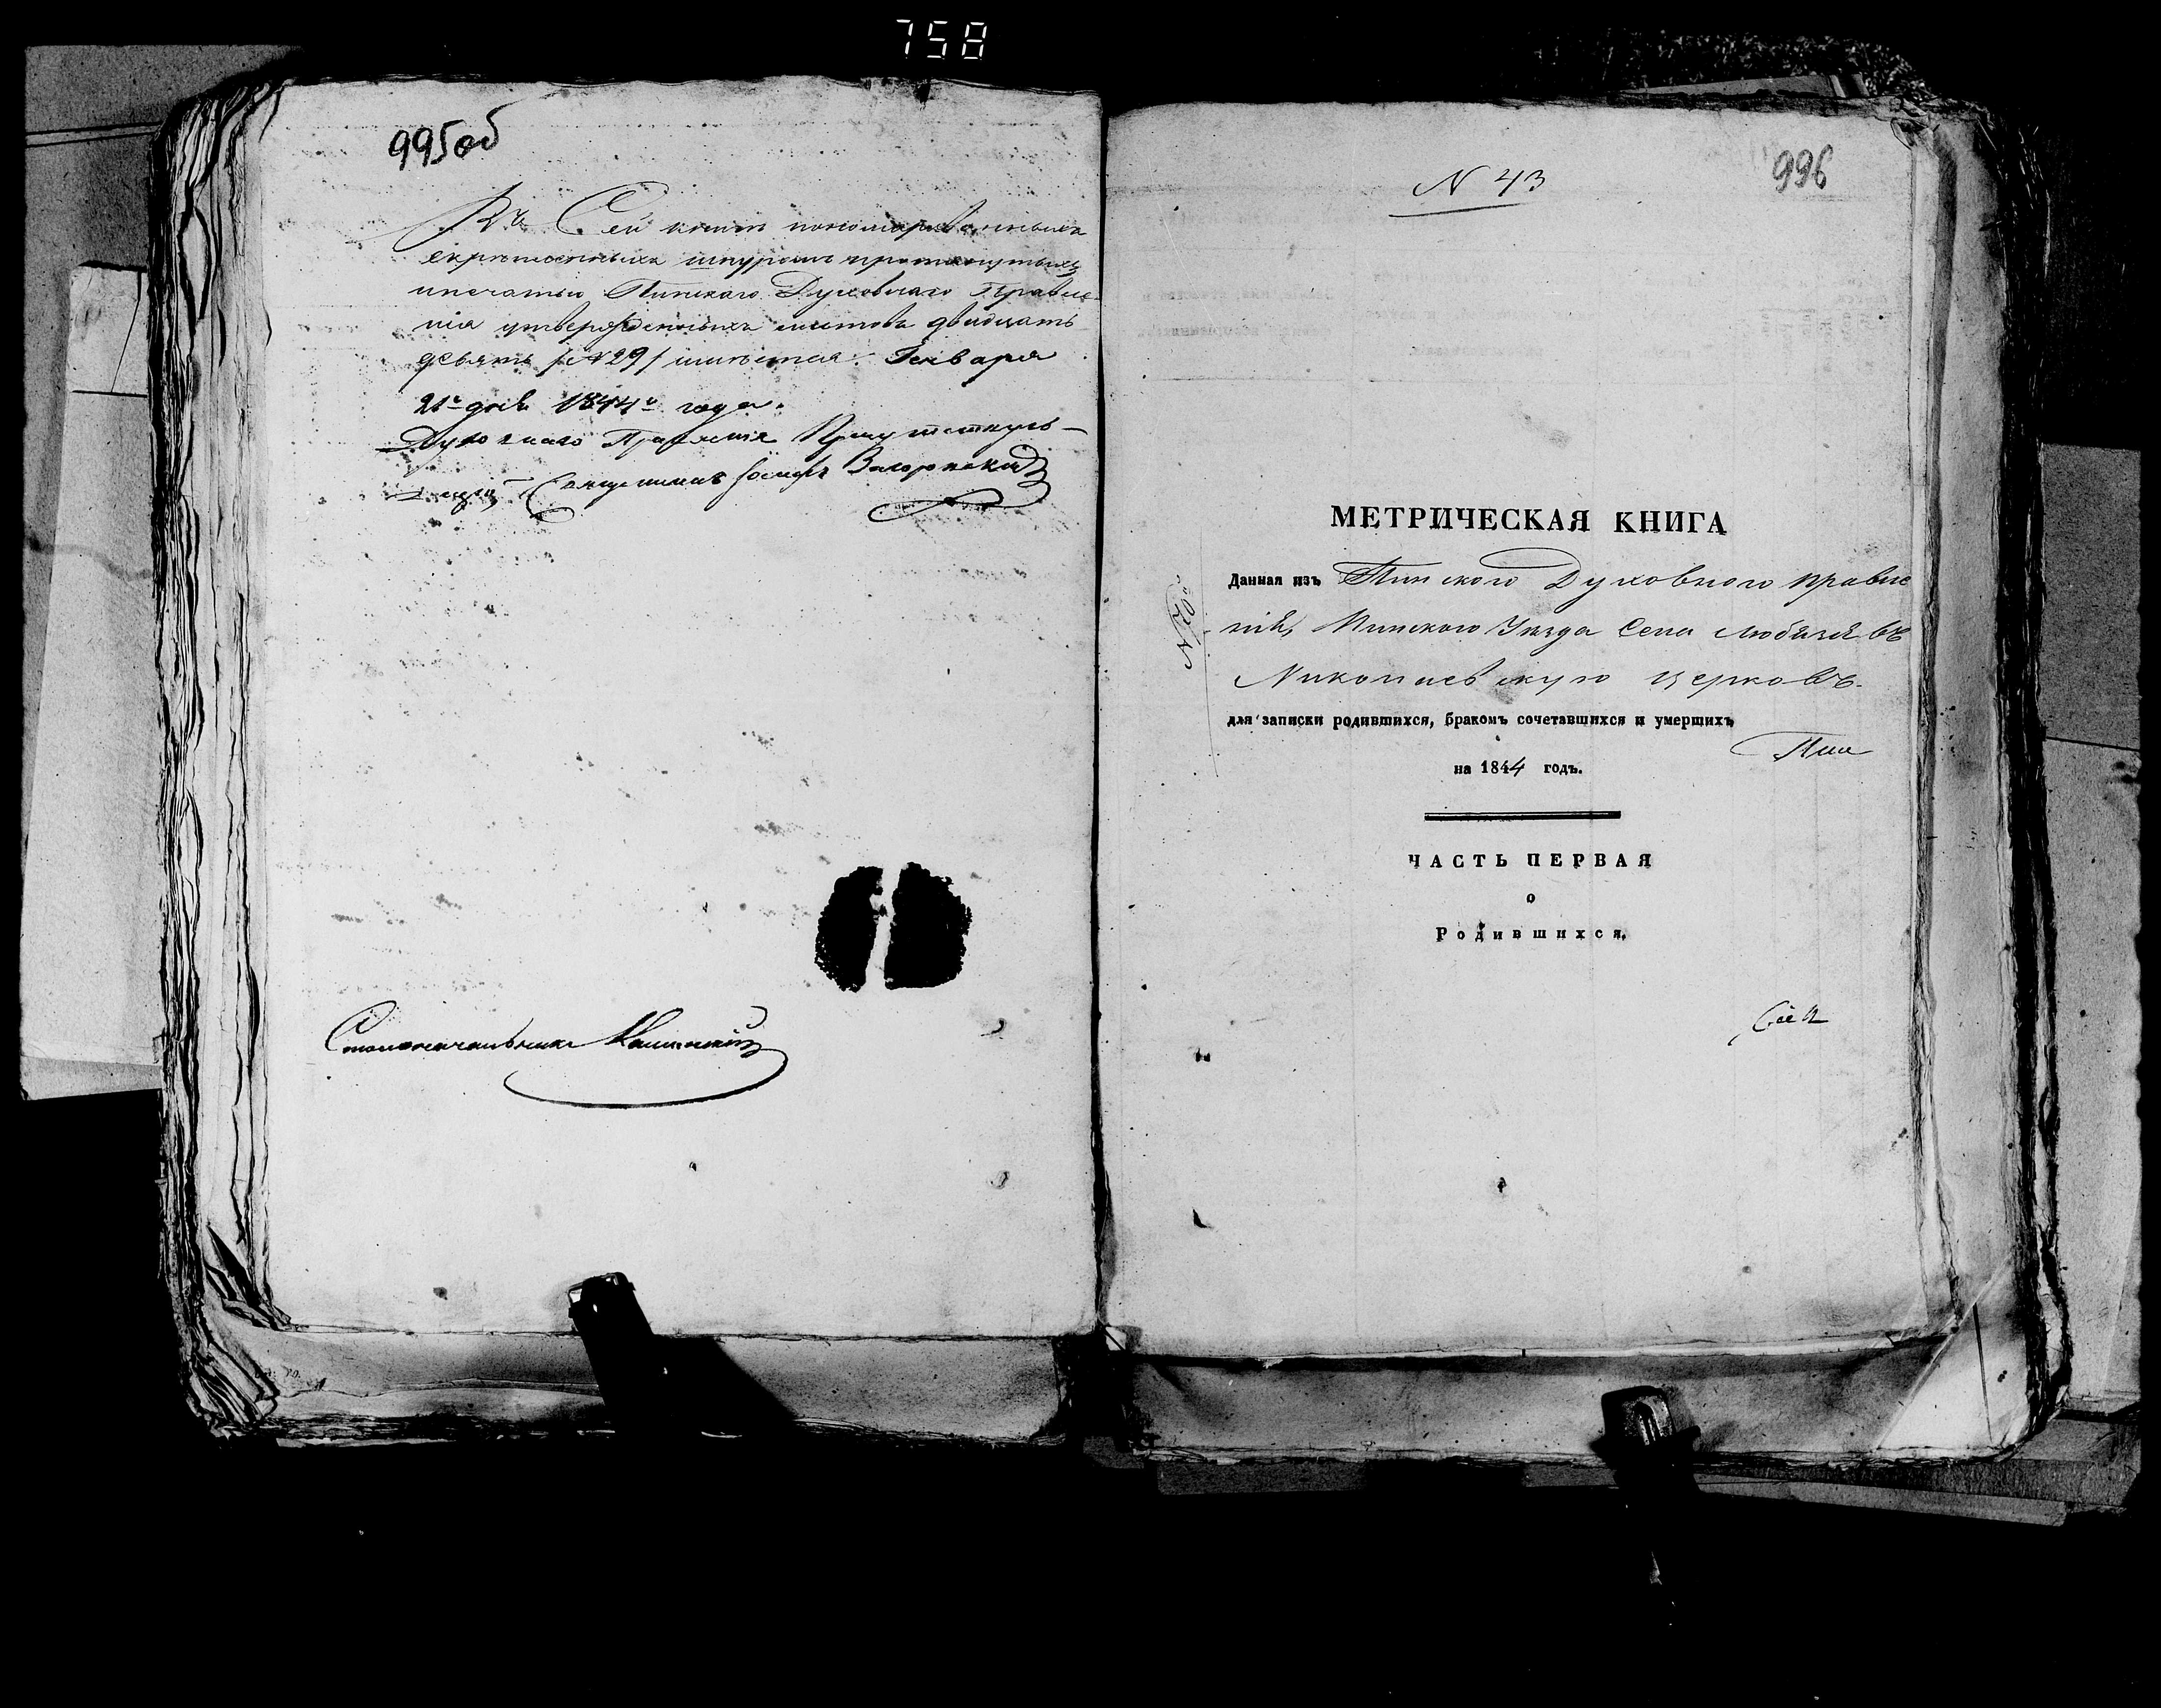 758
995об
Въ Сей книгѣ нономерованныхъ
скрепленныхъ шнуромъ протянутыхъ
и печатью Пинскаго Духовнаго Правле-
нія утвержденныхъ листовъ двадцать
девять /№ 29/ имѣется. Генваря
21го дня 1844го года.
Духовнаго Правленія Присутствую-
щій Священникъ Іосифъ
Столоначальникъ
N 43
996
МЕТРИЧЕСКАЯ КНИГА
Данная изъ Пинского Духовного правле
нія, Пинского Уезда Села Любязя въ
Николаевскую церковь.
для записки родившихся, бракомъ сочетавшихся и умершихъ
на 1844 годъ.
ЧАСТЬ ПЕРВАЯ
о
Родившихся.